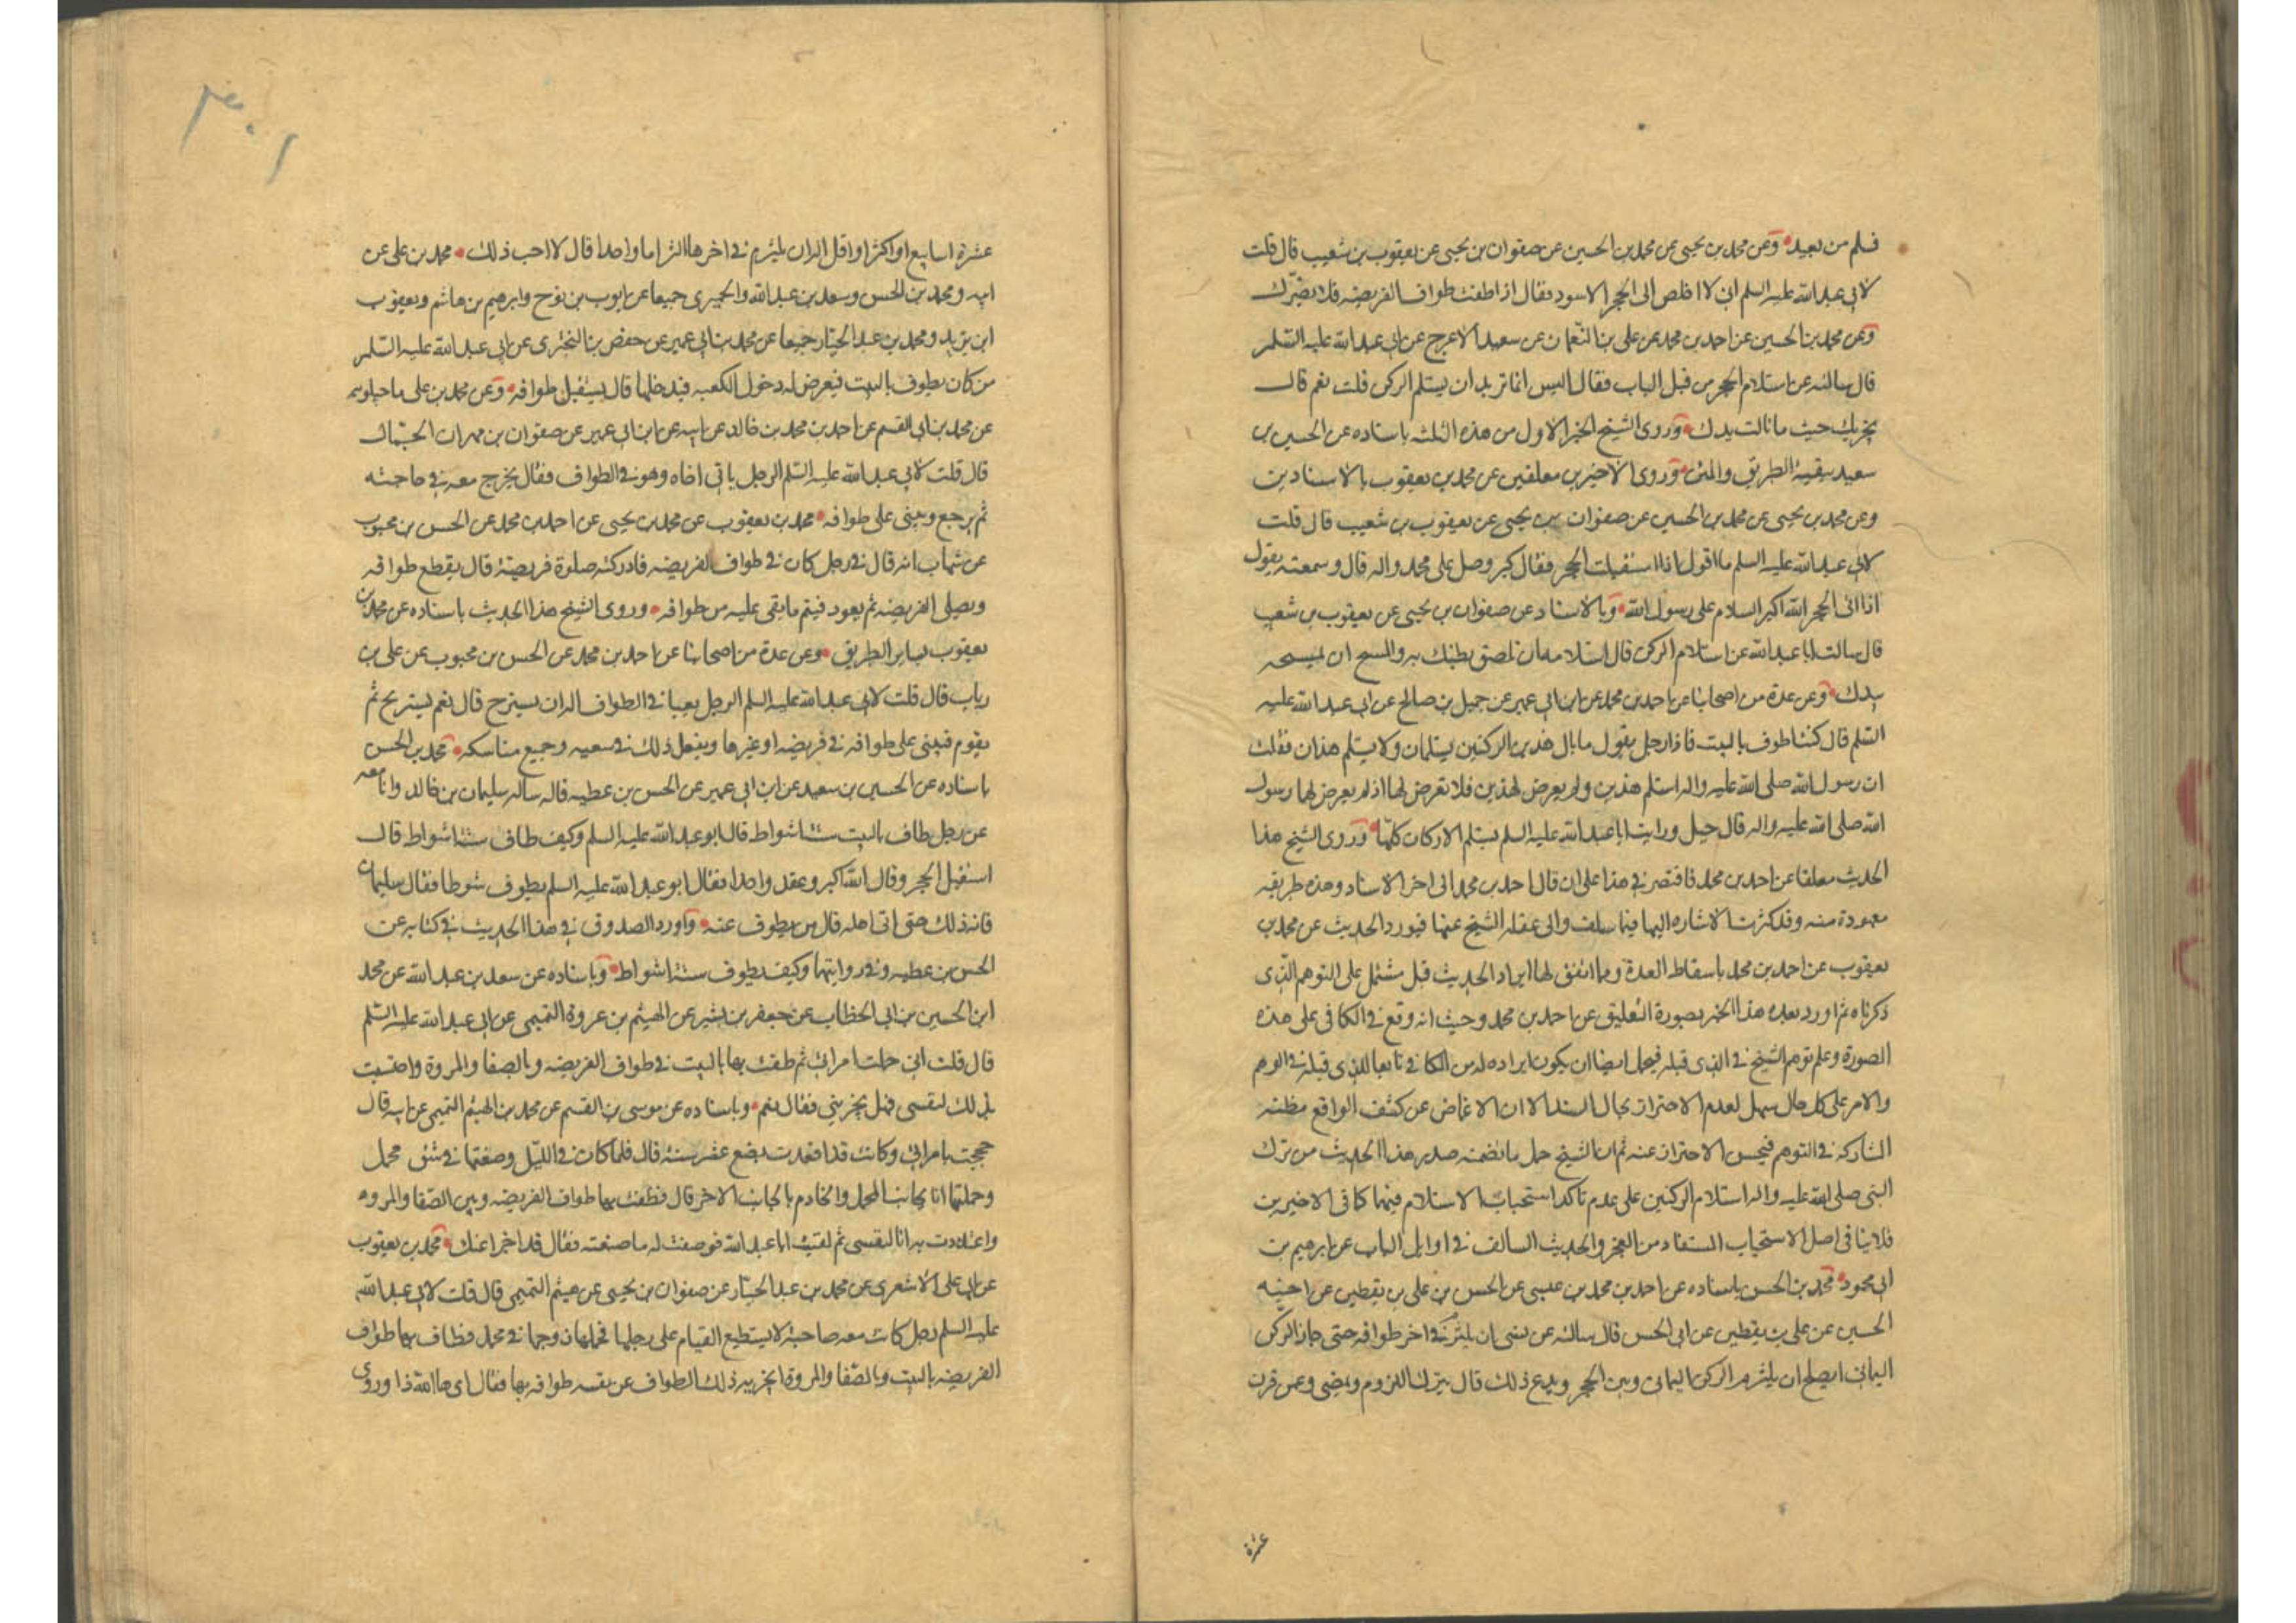 فسلم من بعيد وعن محمد بن يحيى عن محمد بن الحسين عن صفوان بن يحيى عن يعقوب بن شعيب قال قلت
لابى عبدالله عليه السلم انى لا اخلص الى الحجر الاسود فقال اذا طفت طواف الفريضه فلا يضرك
وعن محمد بن الحسين عن احمد بن محمد عن على بن النعمان عن سعيد الاعرج عن ابى عبدالله عليه السلم
قال سالته عن استلام الحجر من قبل الباب فقال اليس انما تريد ان يستلم الركن قلت نعم قال
يجزيك حيث ما نالت يدك وروى الشيخ الخبر الاول من هذه الثلثه باسناده عن الحسين بن
سعيد ببقية الطريق والمتن وروى الاخيرين معلقين عن محمد بن يعقوب بالاسنادين
وعن محمد بن يحيى عن محمد بن الحسين عن صفوان بن يحيى عن يعقوب بن شعيب قال قلت
لابى عبدالله عليه السلم ما اقول اذا استقبلت الحجر فقال كبر وصل على محمد واله قال وسمعته يقول
اذا اتى الحجر الله اكبر السلام على رسول الله وبالاسناد عن صفوان بن يحيى عن يعقوب بن شعيب
قال سالت ابا عبدالله عن استلام الركن قال استلامه ان تلصق بطنك به والمسح ان تمسحه
بيدك وعن عدة من اصحابنا عن احمد بن محمد عن ابن ابى عمير عن جميل بن صالح عن ابى عبدالله عليه
السلم قال كنت اطوف بالبيت فاذا رجل يقول ما بال هذين الركنين يستلمان ولا يستلم هذان فقلت
ان رسول الله صلى الله عليه واله استلم هذين ولم يعرض لهذين فلا تعرض لها اذ لم يعرض لها رسول
الله صلى الله عليه واله قال جميل ورايت ابا عبدالله عليه السلم يستلم الاركان كلها وروى الشيخ هذا
الحديث معلقا عن احمد بن محمد فاقتصر فى هذا على ان قال احمد بن محمد الى اخر الاسناد وهذه طريقه
معهودة منه وقد كثرت الاشاره اليها فيما سلف والى غفلة الشيخ عنها فيورد الحديث عن محمد بن
يعقوب عن احمد بن محمد باسقاط العدة ومما اتفق لها ايراد الحديث قبل مشتمل على التوهم الذى
ذكرناه ثم اورد بعده هذا الخبر بصورة التعليق عن احمد بن محمد وحيث انه وقع فى الكافى على هذه
الصورة وعلم توهم الشيخ فى الذى قبله فيحمل ايضا ان يكون ايراده له من الكافى تابعا للذى قبله فى الوهم
والامر على كل حال سهل لعدم الاحتراز بحال السند الا ان الاغماض عن كشف الواقع مظنه
المشاركه فى التوهم فيحسن الاحتراز عنه ثم ان الشيخ حمل ما تضمنه صدر هذا الحديث من ترك
النبى صلى الله عليه واله استلام الركنين على عدم تاكد استحباب الاستلام فيهما كما فى الاخيرين
فلا ينافى اصل الاستحباب المستفاد من العجز والحديث السالف فى اوايل الباب عن ابرهيم بن
ابى محمود محمد بن الحسن باسناده عن احمد بن محمد بن عيسى عن الحسن بن على بن يقطين عن اخيه
الحسين عن على بن يقطين عن ابى الحسن قال سالته عن نسى ان يلتزم فى اخر طوافه حتى جاز الركن
اليمانى ايصلح ان يلتزم الركن اليمانى وبين الحجر ويدع ذلك قال يترك اللزوم ويمضى وعمن قرن
عشرة
عشرة اسابيع او اكثر او اقل اله ان يلتزم فى اخرها التزاما واحدا قال لا احب ذلك محمد بن على عن
ابيه ومحمد بن الحسن وسعد بن عبدالله والحميرى جميعا عن ايوب بن نوح وابرهيم بن هاشم ويعقوب
ابن يزيد ومحمد بن عبد الجبار جميعا عن محمد بن ابى عمير عن حفص بن البخترى عن ابى عبدالله عليه السلم
من كان يطوف بالبيت فيعرض له دخول الكعبه فيدخلها قال يستقبل طوافه وعن محمد بن على ماجيلويه
عن محمد بن ابى القسم عن احمد بن محمد بن خالد عن ابيه عن ابن ابى عمير عن صفوان بن مهران الجمال
قال قلت لابى عبدالله عليه السلم الرجل ياتى اخاه وهو فى الطواف فقال يخرج معه فى حاجته
ثم يرجع ويبنى على طوافه محمد بن يعقوب عن محمد بن يحيى عن احمد بن محمد عن الحسن بن محبوب
عن شهاب انه قال فى رجل كان فى طواف الفريضه فادركته صلوة فريضة قال يقطع طوافه
ويصلى الفريضه ثم يعود فيتم ما بقى عليه من طوافه وروى الشيخ هذا الحديث باسناده عن محمد بن
يعقوب بساير الطريق وعن عدة من اصحابنا عن احمد بن محمد عن الحسن بن محبوب عن على بن
رياب قال قلت لابى عبدالله عليه السلم الرجل يعيا فى الطواف اله ان يستريح قال نعم يستريح ثم
يقوم فيبنى على طوافه فى فريضه او غيرها ويفعل ذلك فى سعيه وجميع مناسكه محمد بن الحسن
باسناده عن الحسين بن سعيد عن ابن ابى عمير عن الحسن بن عطيه قاله ساله سليمان بن خالد وانا معه
عن رجل طاف بالبيت ستة اشواط قال ابو عبدالله عليه السلم وكيف طاف ستة اشواط قال
استقبل الحجر وقال الله اكبر وعقد واحدا فقال ابو عبدالله عليه السلم يطوف شوطا فقال سليمان
فانه ذلك حتى اتى اهله قال من يطوف عنه واورد الصدوق فى هذا الحديث فى كتابه عن
الحسن بن عطيه وفى روايتها وكيف يطوف ستة اشواط وباسناده عن سعد بن عبدالله عن محمد
ابن الحسين بن ابى الخطاب عن جعفر بن بشير عن الهيثم بن عروة التميمى عن ابى عبدالله عليه السلم
قال قلت انى حملت امراتى ثم طفت بها بالبيت فى طواف الفريضه وبالصفا والمروة واحتسبت
بذلك لنفسى فهل يجزينى فقال نعم وباسناده عن موسى بن القسم عن محمد بن الهيثم التميمى عن ابيه قال
حججت بامراتى وكانت قد اقعدت بضع عشر سنة قال فلما كان فى الليل وضعتها فى شق محمل
وحملتها انا بجانب المحمل والخادم بالجانب الاخر قال فطفت بها طواف الفريضه وبين الصفا والمروه
واعتددت به انا لنفسى ثم لقيت ابا عبدالله فوصفت له ما صنعته فقال قد اجزا عنك محمد بن يعقوب
عن ابى على الاشعرى عن محمد بن عبد الجبار عن صفوان بن يحيى عن هيثم التميمى قال قلت لابى عبدالله
عليه السلم رجل كانت معه صاحبة لا يستطيع القيام على رجلها فحملها زوجها فى محمل فطاف بها طواف
الفريضه بالبيت وبالصفا والمروة ايجزيه ذلك الطواف عن نفسه طوافه بها فقال اى ها الله ذا وروى